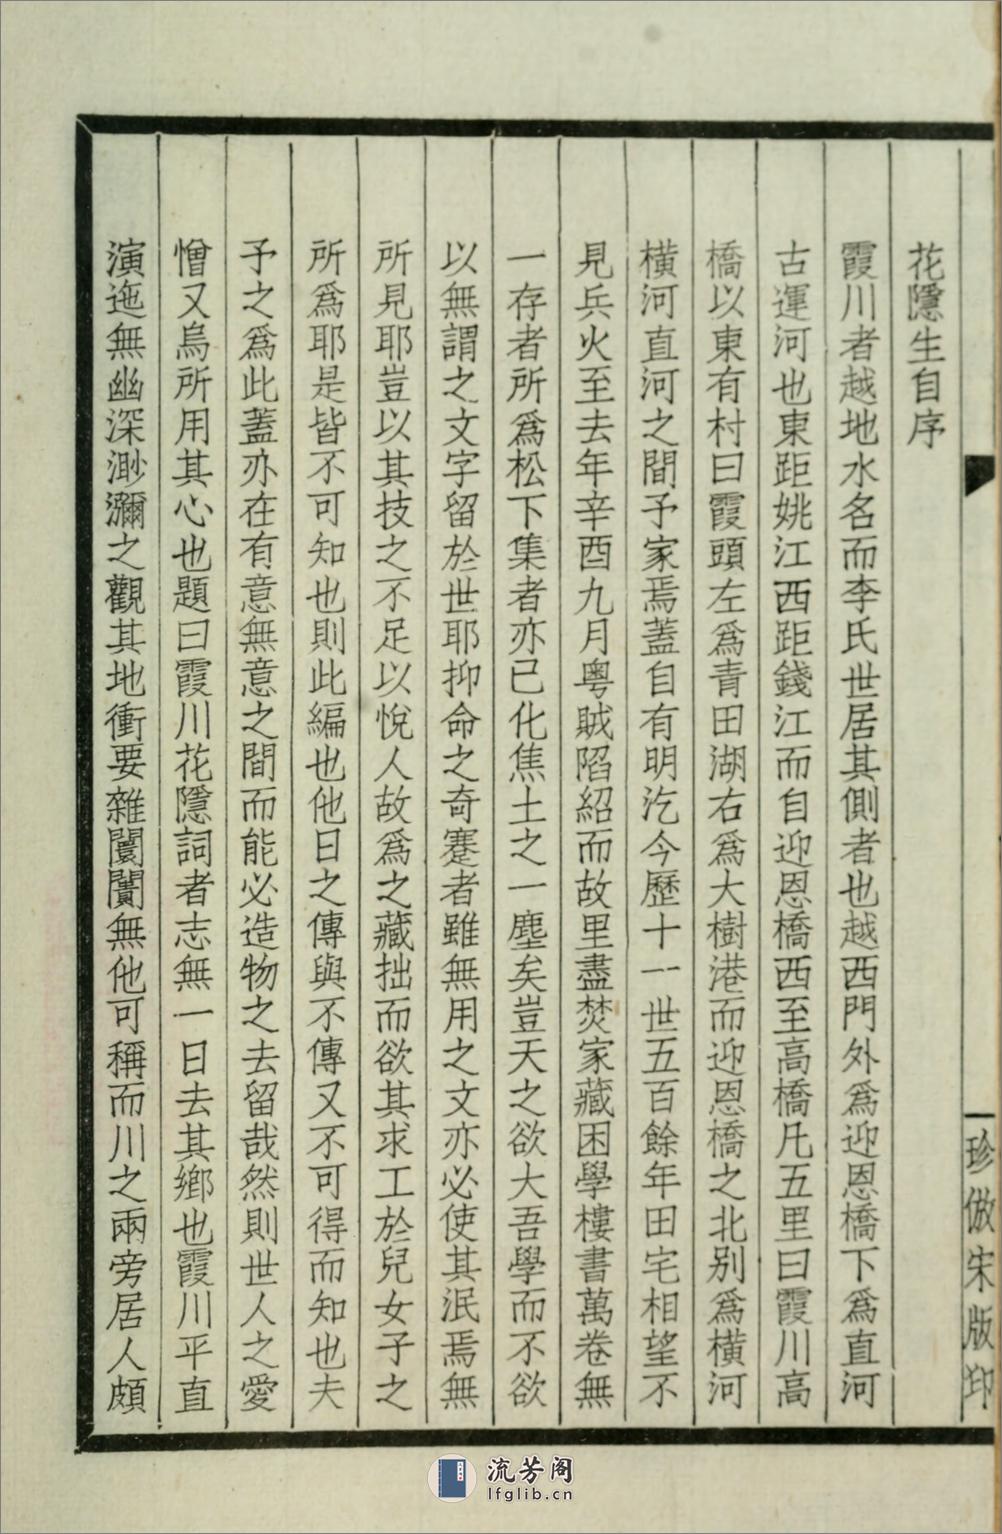 珍倣宋版印
花隱生自序
霞川者越地水名而李氏世居其側者也越西門外爲迎恩橋下爲直河
古運河也東距姚江西距錢江而自迎恩橋西至高橋凡五里曰霞川高
橋以東有村曰霞頭左爲青田湖右爲大樹港而迎恩橋之北別爲橫河
橫河直河之間予家焉蓋自有明汔今歷十一世五百餘年田宅相望不
見兵火至去年辛酉九月粵賊陷紹而故里盡焚家藏困學樓書萬卷無
一存者所爲松下集者亦已化焦土之一塵矣豈天之欲大吾學而不欲
以無謂之文字留於世耶抑命之奇蹇者雖無用之文亦必使其泯焉無
所見耶豈以其技之不足以悅人故爲之藏拙而欲其求工於兒女子之
所爲耶是皆不可知也則此編也他日之傳與不傳又不可得而知也夫
予之爲此蓋亦在有意無意之間而能必造物之去留哉然則世人之愛
憎又烏所用其心也題曰霞川花隱詞者志無一日去其鄉也霞川平直
演迤無幽深渺瀰之觀其地衝要雜闤闠無他可稱而川之兩旁居人頗
流芳阁
lfglib.cn